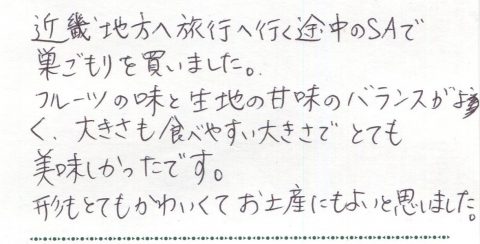 近畿地方へ旅行へ行く途中のSAで
巣ごもりを買いました。
フルーツの味と生地の甘味のバランスがよ
く、大きさも食べやすい大きさでとても
美味しかったです。
形もとてもかわいくてお土産にもよいと思いました。